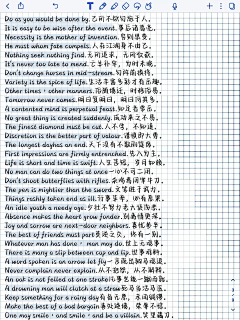 Do as you would be done by. 己所不欲勿施于人。
It is easy to be wise after the event. 事后诸葛亮。
Necessity is the mother of invention.
He must whom fate compels. 人在江湖身不由己。
Nothing seek nothing find. 无所追求，无所收获。
It's never too late to mend. 亡羊补牢，为时未晚。
Don't change horses in mid-stream.
Variety is the spice of life.
Other times, other manners.
Tomorrow never comes. 明日复明日，明日何其多。
A contented mind is perpetual feast. 知足者常乐。
No great thing is created suddenly.
The finest diamond must be cut.
Discretion is the better part of valour.
The longest day has an end. 天下没有不散的筵席。
First impressions are firmly entrenched. 先入为主。
Life is short and time is swift. 人生苦短，岁月如梭。
No man can do two things at once
Don't shoot butterflies with rifles. 杀鸡焉用宰牛刀。
The pen is mightier than the sword.
Things easily taken end as ill.
An idle youth a needy age. 少壮不努力老大徒伤悲。
Absence makes the heart grow fonder.
Joy and sorrow are next-door neighbors.
The best of friends must part
Whatever man has done, man may do.
There is many a slip between cup and lip.
A word spoken is an arrow let fly
Never complain never explain.
An oak is not felled at one stroke
A drowning man will clutch at a straw
Keep something for a rainy day
Make the best of a bad bargain
One may smile, and smile, and be a villain. 笑里藏刀。